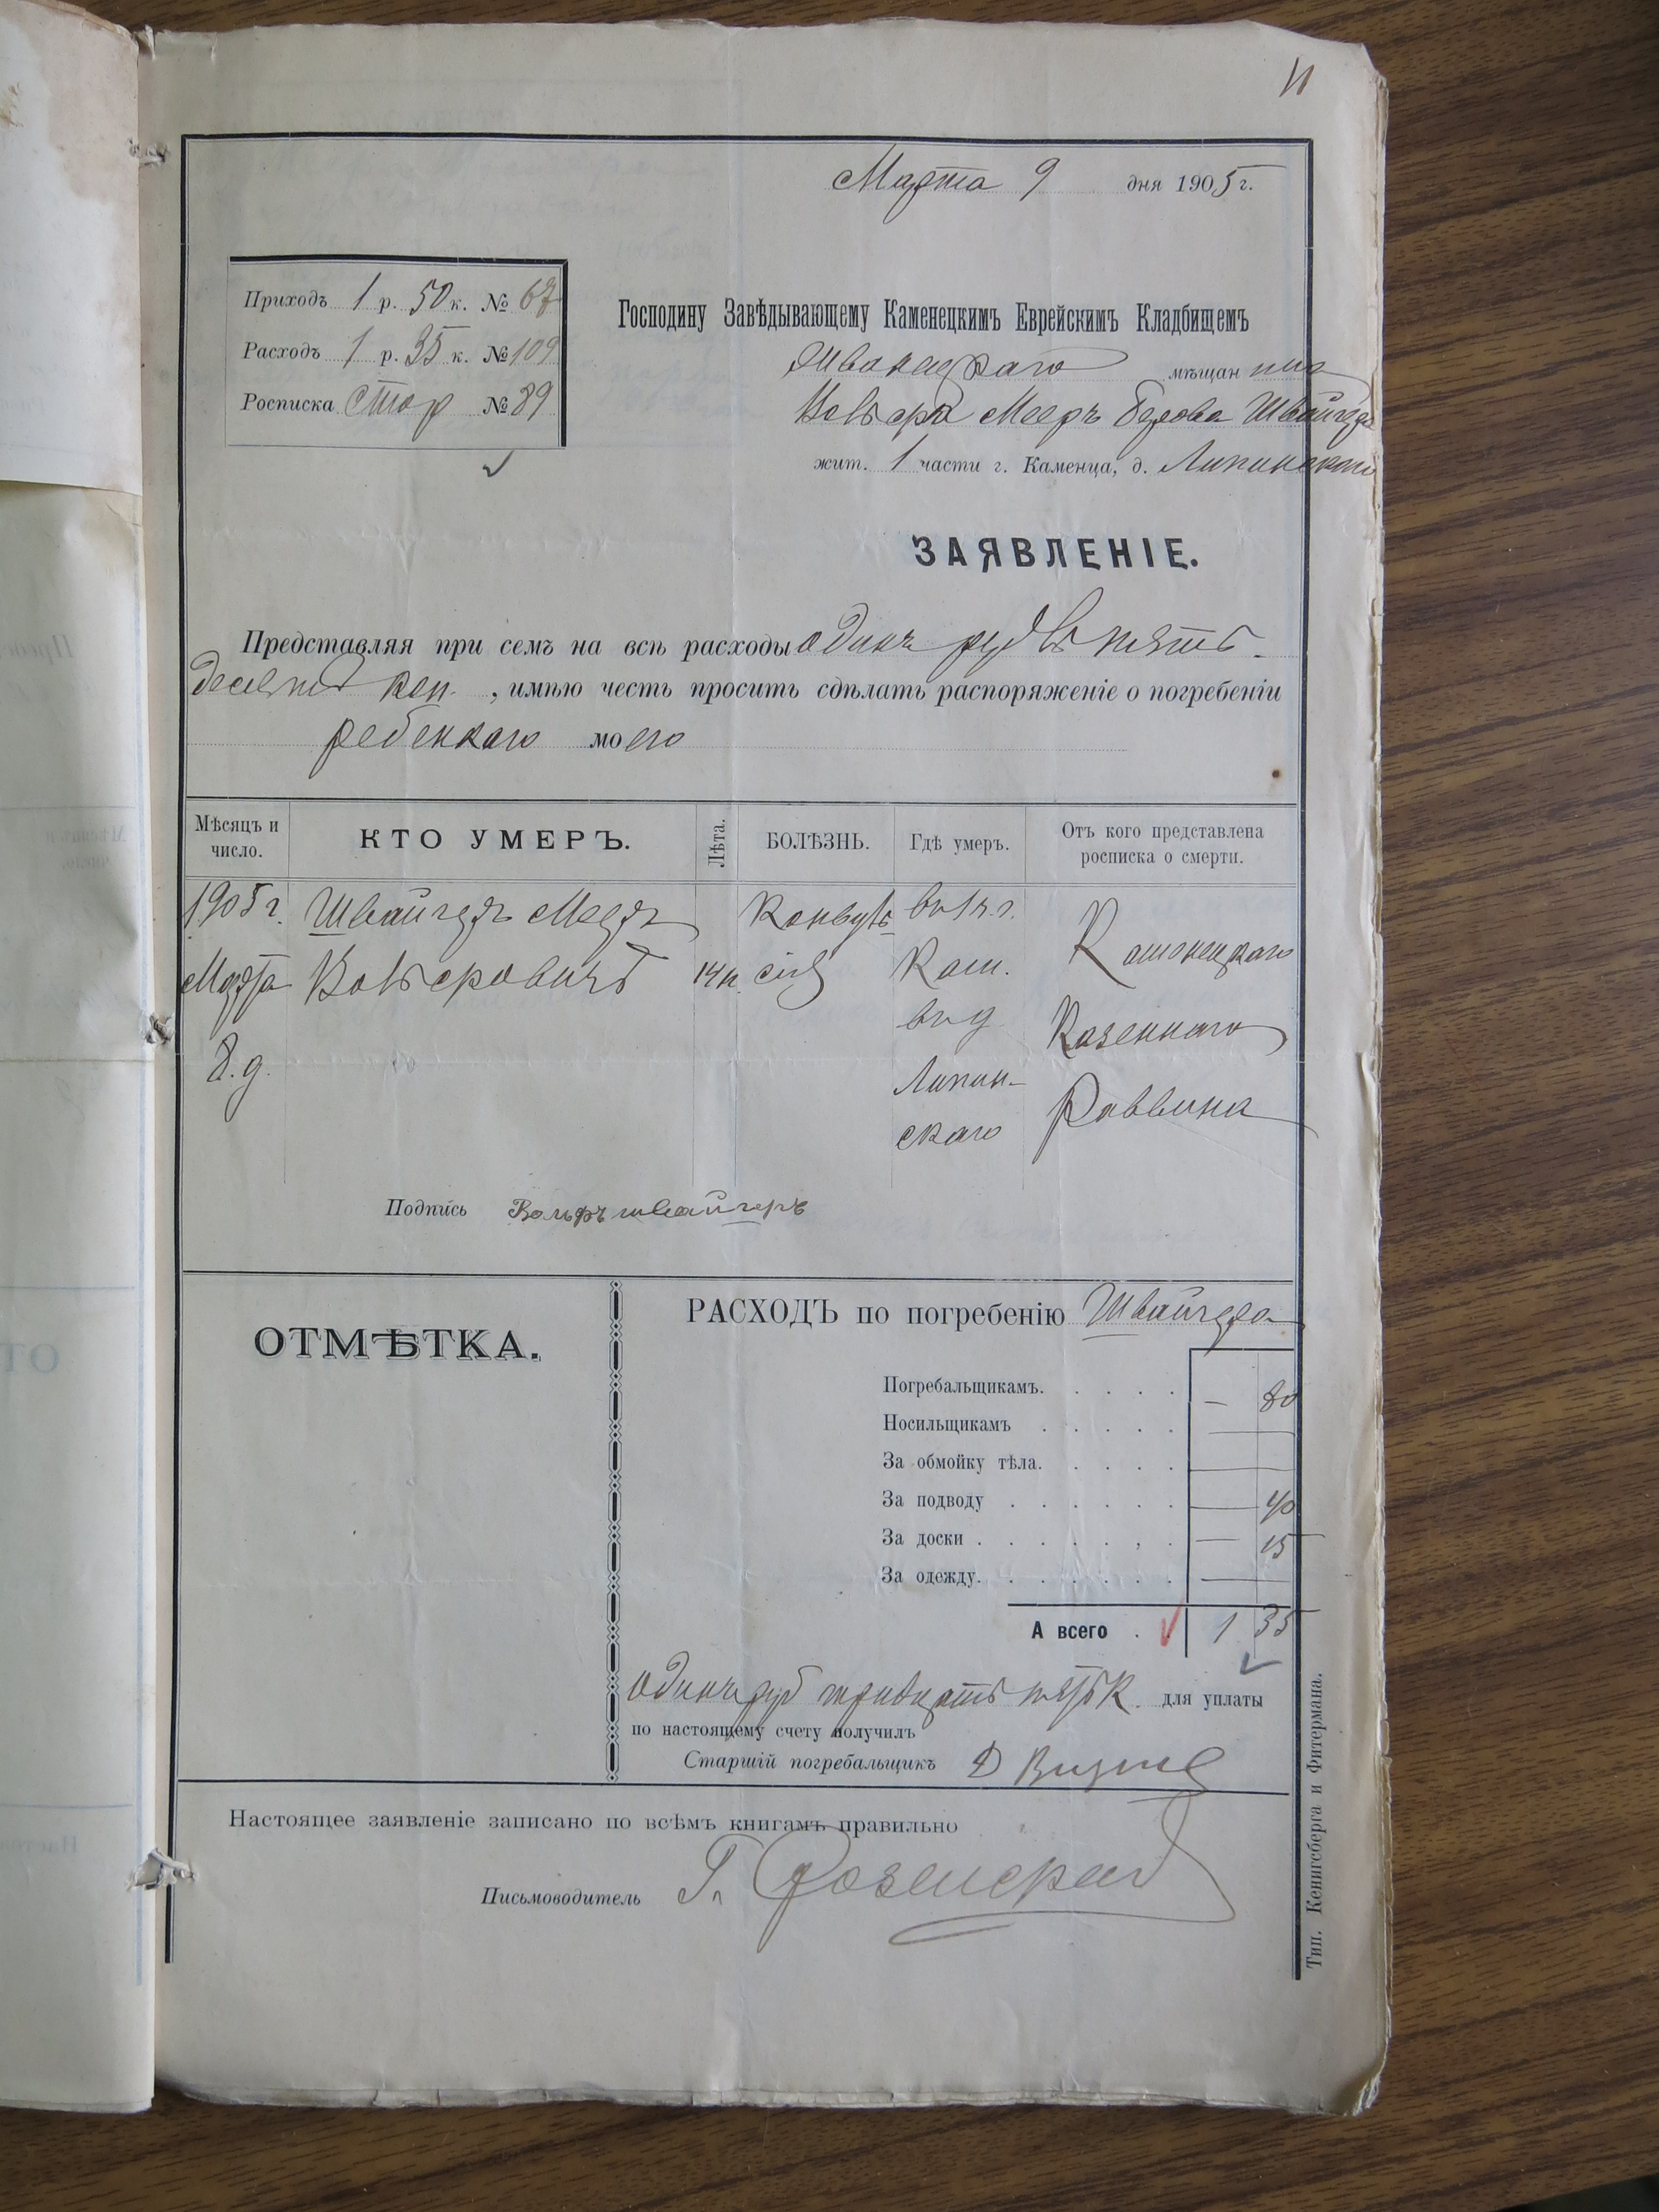 11
Марта 9 дня 1905 г.
Приходъ 1 р. 50 к. № 67
Расходъ 1 р. 35 к. № 109
Росписка стор № 89
Господину Завѣдывающему Каменецкимъ Еврейскимъ Кладбищемъ
Жванецкаго мѣщанина
Вольфа Мееръ Берова Швайгера
жит. 1 части г. Каменца, д. Липинскаго
ЗАЯВЛЕНІЕ.
Представляя при семъ на всѣ расходы одинъ рубль пять-
десятъ коп., имѣю честь просить сдѣлать распоряженіе о погребеніи
ребенкаго моего
Мѣсяцъ и число.
КТО УМЕРЪ.
Лѣта.
БОЛѢЗНЬ.
Гдѣ умеръ.
Отъ кого представлена росписка о смерти.
1905 г.
Марта
8. д.
Швайгеръ Мееръ
Вольфовичъ
Конвуль-
сія
въ 1 ч. г.
Кам.
въ д
Липин-
скаго
Каменецкаго
Казеннаго
Раввина
Подпись Вольфъ швайгеръ
ОТМѢТКА.
РАСХОДЪ по погребенію Швайгера
Погребальщикамъ. — 80
Носильщикамъ —
За обмойку тѣла. —
За подводу — 40
За доски — 15
За одежду. —
А всего 1 35
одинъ руб тридцать пять к. для уплаты
по настоящему счету получилъ
Старшій погребальщикъ Д
Настоящее заявленіе записано по всѣмъ книгамъ правильно
Письмоводитель Г.
Тип. Кенигсберга и Фитермана.